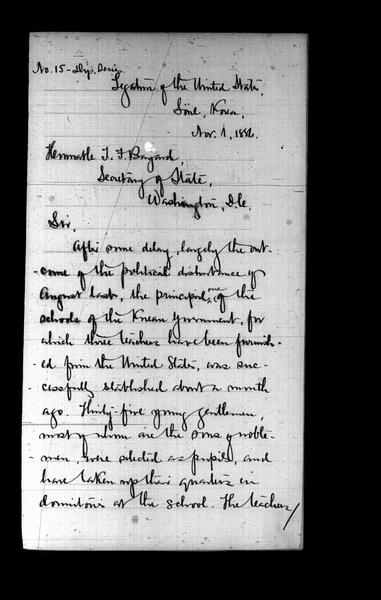 No. 15 - Dip. Series
Legation of the United States,
Söul, Korea,
Nov. 1, 1886.
Honorable T. F. Bayard,
Secretary of State,
Washington, D.C.
Sir,
After some delay, largely the out-
come of the political disturbance of
August last, the principal one of the
schools of the Korean government, for
which three teachers have been furnish-
ed from the United States, was suc-
cessfully established about a month
ago. Thirty-five young gentlemen,
most of whom are the sons of noble-
men, were selected as pupils, and
have taken up their quarters in
dormitories at the school. The teachers